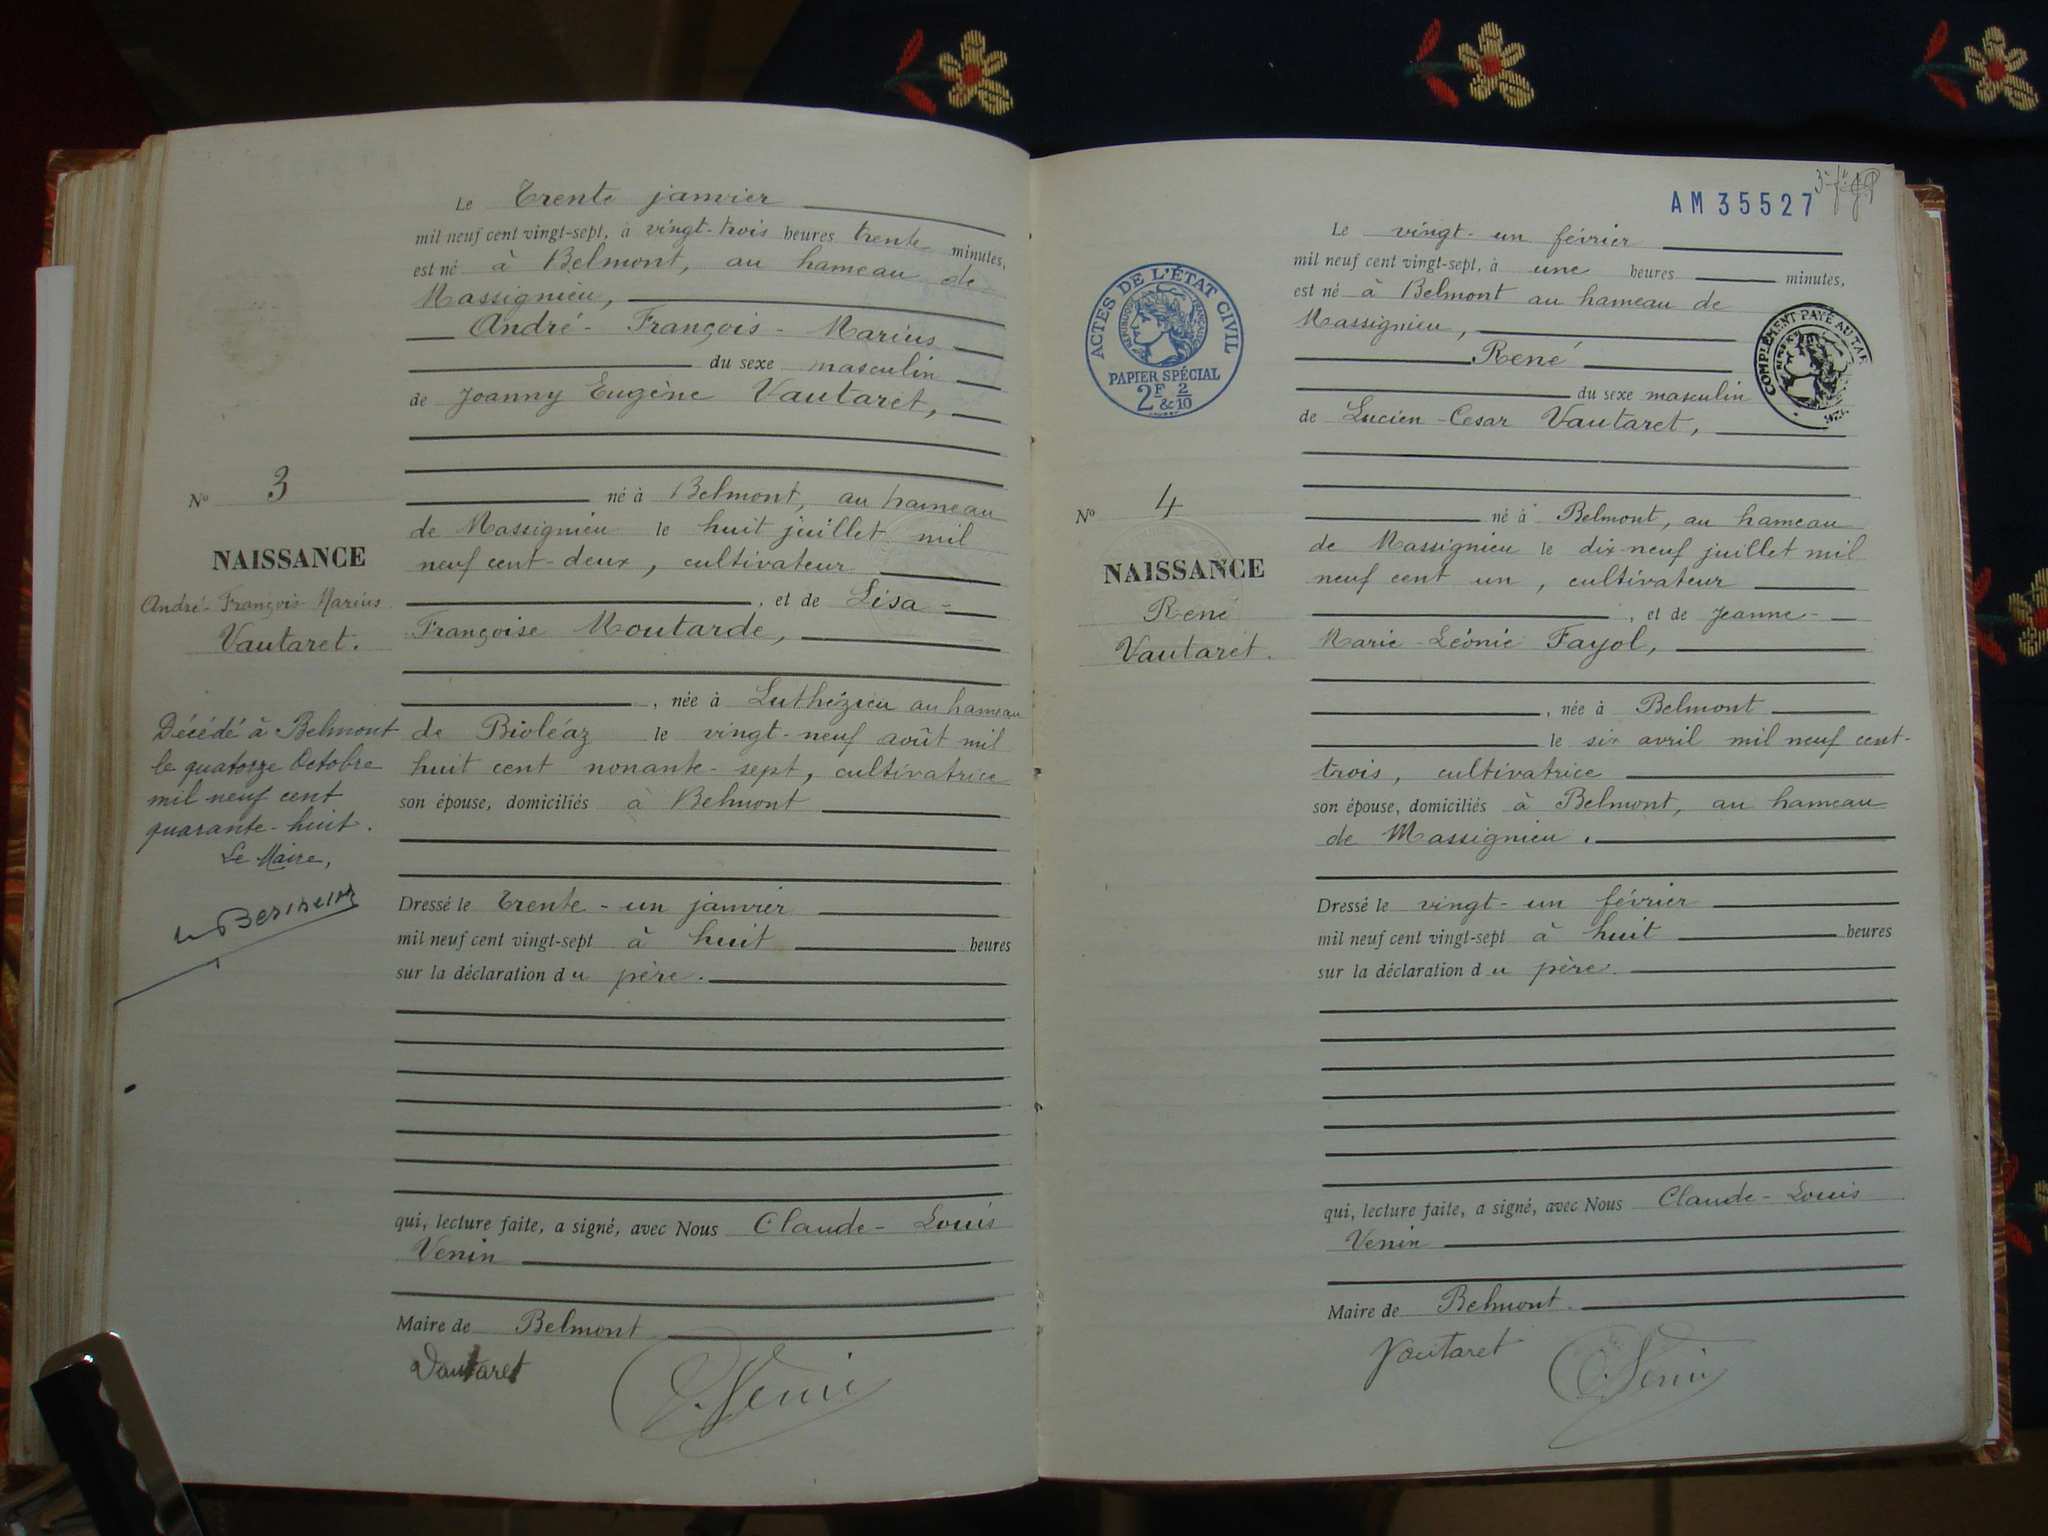 Le Trente janvier
mil neuf cent vingt-sept, à vingt-trois heures trente minutes,
est né à Belmont, au hameau de
Massignieu,
André - François - Marius
du sexe masculin
de Joanny Eugène Vautaret,
né à Belmont, au hameau
de Massignieu le huit juillet mil
neuf cent-deux, cultivateur
, et de Lisa -
Françoise Moutarde,
, née à Luthézieu au hameau
de Bioléaz le vingt-neuf août mil
huit cent nonante-sept, cultivatrice
son épouse, domiciliés à Belmont
Dressé le trente-un janvier
mil neuf cent vingt-sept à huit heures
sur la déclaration du père.
qui, lecture faite, a signé, avec Nous Claude - Louis
Venin
Maire de Belmont
Vautaret
C. Venin
No 3
NAISSANCE
André-François-Marius
Vautaret.
Décédé à Belmont
le quatorze Octobre
mil neuf cent
quarante-huit.
Le Maire,
AM 35527
ACTES DE L'ÉTAT CIVIL
RÉPUBLIQUE FRANÇAISE
PAPIER SPÉCIAL
2F & 2/10
COMPLÉMENT PAYÉ AU TAR
Le vingt-un février
mil neuf cent vingt-sept, à une heures minutes,
est né à Belmont au hameau de
Massignieu,
René
du sexe masculin
de Lucien-Cesar Vautaret,
né à Belmont, au hameau
de Massignieu le dix-neuf juillet mil
neuf cent un, cultivateur
, et de Jeanne -
Marie-Léonie Fayol,
, née à Belmont
le six avril mil neuf cent-
trois, cultivatrice
son épouse, domiciliés à Belmont, au hameau
de Massignieu.
Dressé le vingt-un février
mil neuf cent vingt-sept à huit heures
sur la déclaration du père.
qui, lecture faite, a signé, avec Nous Claude - Louis
Venin
Maire de Belmont.
Vautaret
C. Venin
No 4
NAISSANCE
René
Vautaret.